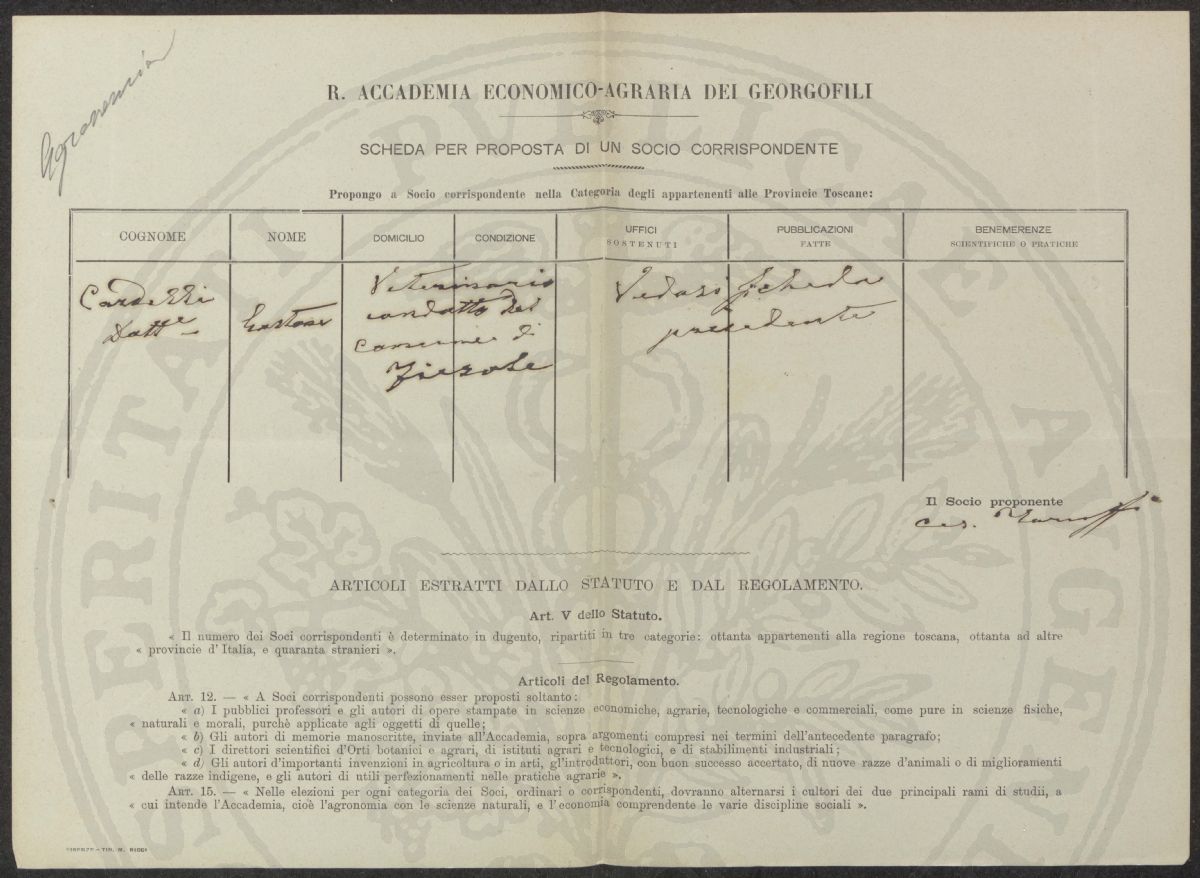 Agronomia
R. ACCADEMIA ECONOMICO-AGRARIA DEI GEORGOFILI
SCHEDA PER PROPOSTA DI UN SOCIO CORRISPONDENTE
Propongo a Socio corrispondente nella Categoria degli appartenenti alle Provincie Toscane:
COGNOME
NOME
DOMICILIO
CONDIZIONE
UFFICI
SOSTENUTI
PUBBLICAZIONI
FATTE
BENEMERENZE
SCIENTIFICHE O PRATICHE
Dott
Gastone
Veterinario
condotto del
comune di
Fiesole
Vedasi scheda
precedente
Il Socio proponente
ces.
ARTICOLI ESTRATTI DALLO STATUTO E DAL REGOLAMENTO.
Art. V dello Statuto.
« Il numero dei Soci corrispondenti è determinato in dugento, ripartiti in tre categorie: ottanta appartenenti alla regione toscana, ottanta ad altre
« provincie d'Italia, e quaranta stranieri ».
Articoli del Regolamento.
ART. 12. — « A Soci corrispondenti possono esser proposti soltanto:
« a) I pubblici professori e gli autori di opere stampate in scienze economiche, agrarie, tecnologiche e commerciali, come pure in scienze fisiche,
« naturali e morali, purchè applicate agli oggetti di quelle;
« b) Gli autori di memorie manoscritte, inviate all'Accademia, sopra argomenti compresi nei termini dell'antecedente paragrafo;
« c) I direttori scientifici d'Orti botanici e agrari, di istituti agrari e tecnologici, e di stabilimenti industriali;
« d) Gli autori d'importanti invenzioni in agricoltura o in arti, gl'introduttori, con buon successo accertato, di nuove razze d'animali o di miglioramenti
« delle razze indigene, e gli autori di utili perfezionamenti nelle pratiche agrarie ».
ART. 15. — « Nelle elezioni per ogni categoria dei Soci, ordinari o corrispondenti, dovranno alternarsi i cultori dei due principali rami di studii, a
« cui intende l'Accademia, cioè l'agronomia con le scienze naturali, e l'economia comprendente le varie discipline sociali ».
FIRENZE - TIP. M. RICCI
PROSPERITATI PVBLICAE AVGENDAE